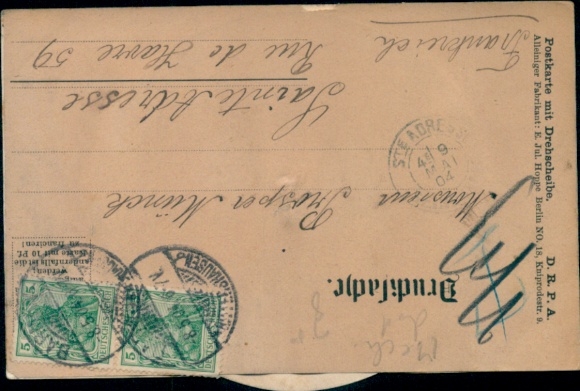 Postkarte mit Drehscheibe. D. R. P. A.
Alleiniger Fabrikant: E. Jul. Hoppe Berlin NO. 18, Kniprodestr. 9.
Drucksache.
Monsieur
Prosper Münch
Sainte Adresse
Rue de Havre 59
Frankreich
STE ADRESSE
9
MAI
04
werden,
andernfalls ist die
Karte mit 10 Pf.
zu frankiren!
BARMEN
5 5
5 5